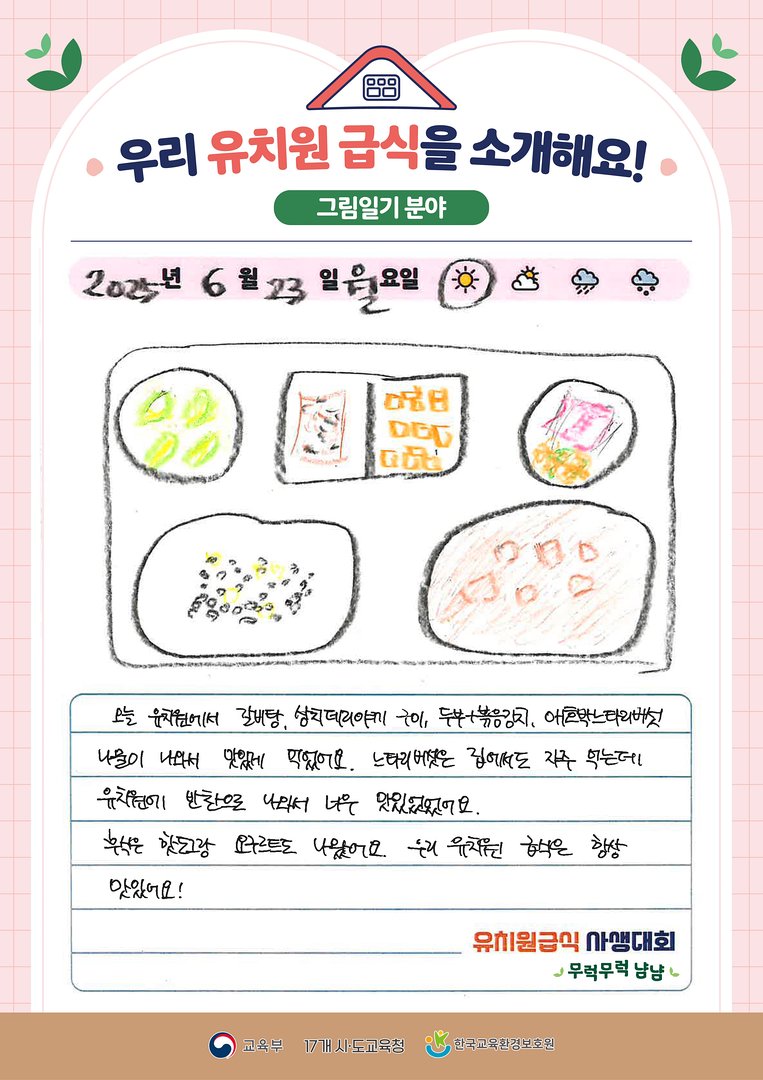 우리 유치원 급식을 소개해요!
그림일기 분야
2025년 6월 23일 월요일
오늘 유치원에서 갈비탕, 삼치데리야끼 구이, 두부+볶음김치, 애호박느타리버섯
나물이 나와서 맛있게 먹었어요. 느타리버섯은 집에서도 자주 먹는데
유치원에 반찬으로 나와서 너무 맛있었어요.
후식은 핫도그랑 요구르트도 나왔어요. 우리 유치원 급식은 항상
맛있어요!
유치원급식 사생대회
무럭무럭 냠냠
교육부 17개 시·도교육청 한국교육환경보호원